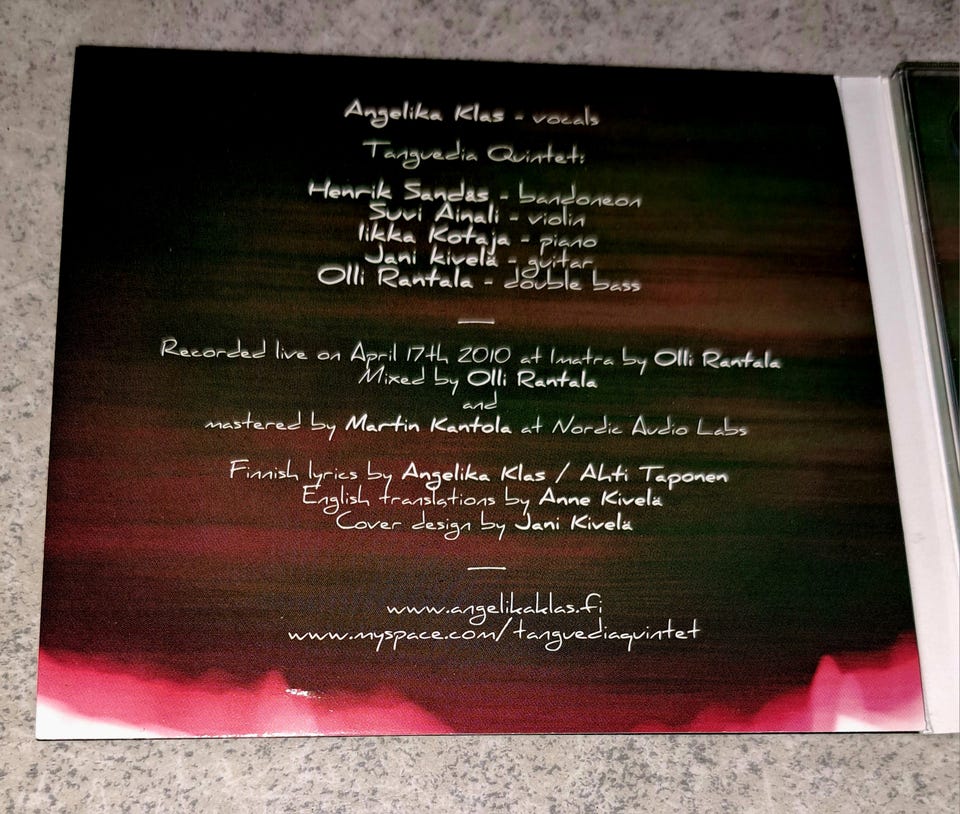 Angelika Klas - vocals
Tanguedia Quintet:
Henrik Sandås - bandoneon
Suvi Ainali - violin
Iikka Kotaja - piano
Jani kivelä - guitar
Olli Rantala - double bass
Recorded live on April 17th 2010 at Imatra by Olli Rantala
Mixed by Olli Rantala
and
mastered by Martin Kantola at Nordic Audio Labs
Finnish lyrics by Angelika Klas / Ahti Taponen
English translations by Anne Kivelä
Cover design by Jani Kivelä
www.angelikaklas.fi
www.myspace.com/tanguediaquintet